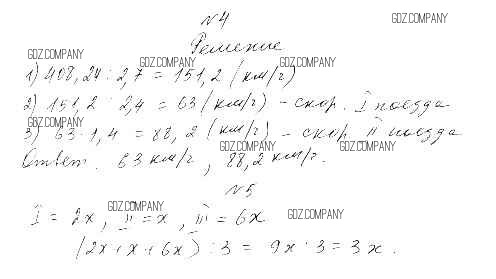 №4
GDZ.COMPANY
Решение
GDZ.COMPANY
GDZ.COMPANY
GDZ.COMPANY
1) 408,24 : 2,7 = 151,2 (км/г)
2) 151,2 : 2,4 = 63 (км/г) - скор. I поезда
GDZ.COMPANY
3) 63 · 1,4 = 88,2 (км/г) - скор II поезда
GDZ.COMPANY
GDZ.COMPANY
Ответ. 63 км/г, 88,2 км/г.
№5
GDZ.COMPANY
GDZ.COMPANY
I = 2x, II = x, III = 6x
(2x + x + 6x) : 3 = 9x : 3 = 3x.